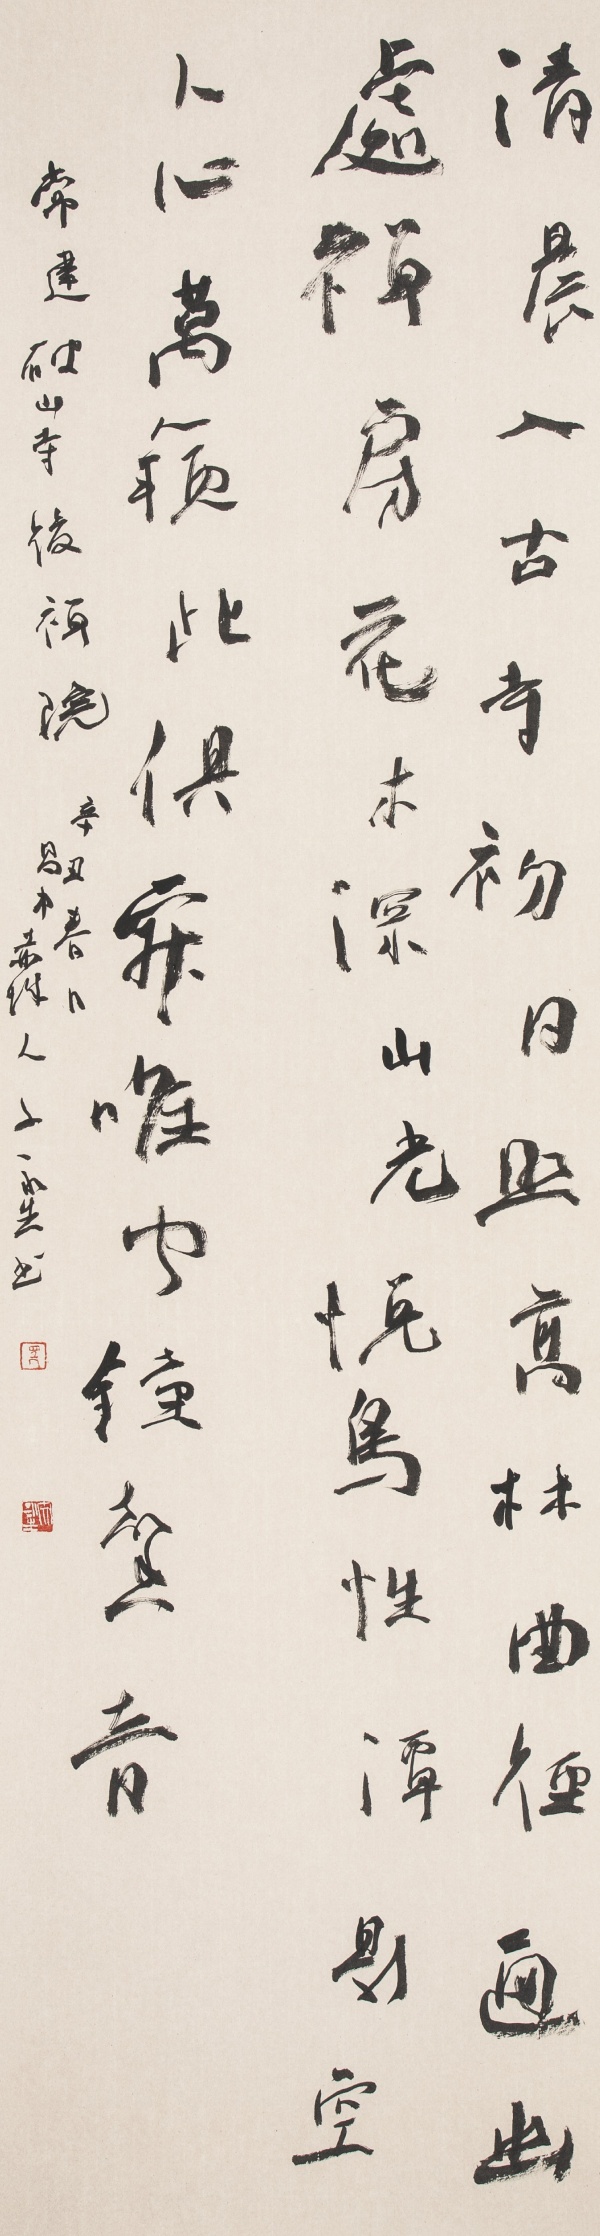 清晨入古寺初日照高林曲徑通幽
處禪房花木深山光悅鳥性潭影空
人心萬籟此俱寂唯聞鐘磬音
常建破山寺後禪院
辛丑春月
人